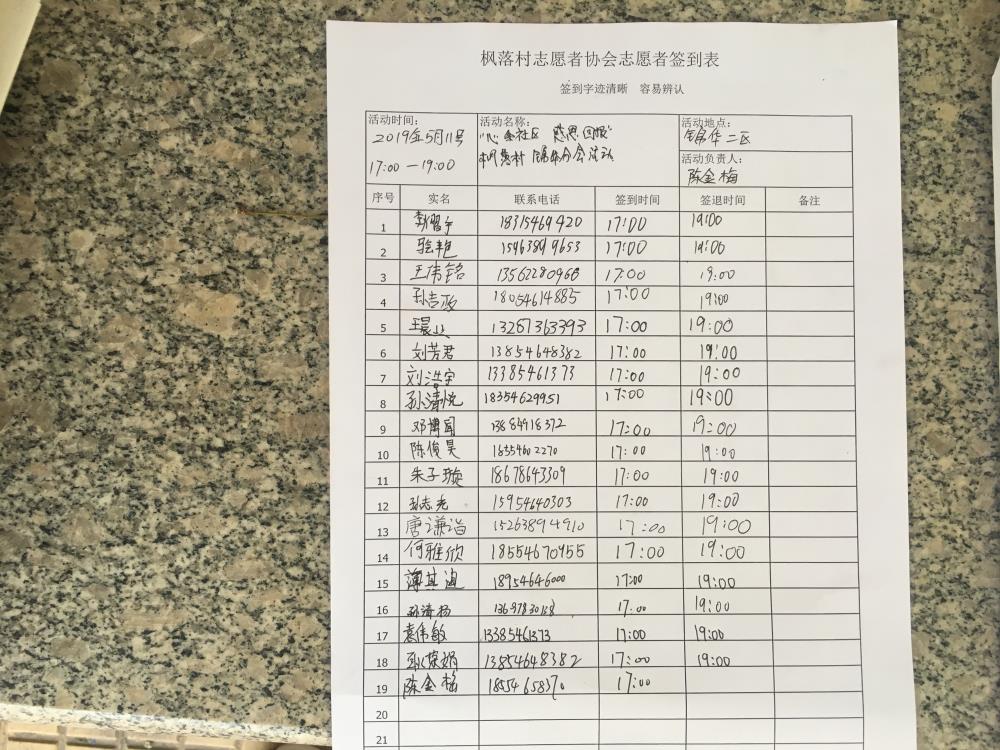 枫落村志愿者协会志愿者签到表
签到字迹清晰 容易辨认
活动时间:
2019年5月11号
17:00 — 19:00
活动名称:
社区 感恩回馈"
活动
活动地点:
锦华二区
活动负责人:
陈金梅
序号 实名 联系电话 签到时间 签退时间 备注
1 18315469420 17:00 19:00
2 17:00 19:00
3 王伟铭 13562280966 17:00 19:00
4 孙吉政 18054614885 17:00 19:00
5 13267363393 17:00 19:00
6 刘芳君 13854648382 17:00 19:00
7 刘浩宇 13385461373 17:00 19:00
8 孙清悦 18354629951 17:00 19:00
9 邓博闻 17:00 19:00
10 陈俊昊 18554602270 17:00 19:00
11 朱子璇 18678643309 17:00 19:00
12 孙志尧 15954640303 17:00 19:00
13 唐谦浩 15263894910 17:00 19:00
14 何雅欣 18554670955 17:00 19:00
15 薄其迪 18954646000 17:00 19:00
16 孙清扬 17:00 19:00
17 袁伟敏 13385461373 17:00 19:00
18 13854648382 17:00 19:00
19 陈金梅 18554658370 17:00
20
21